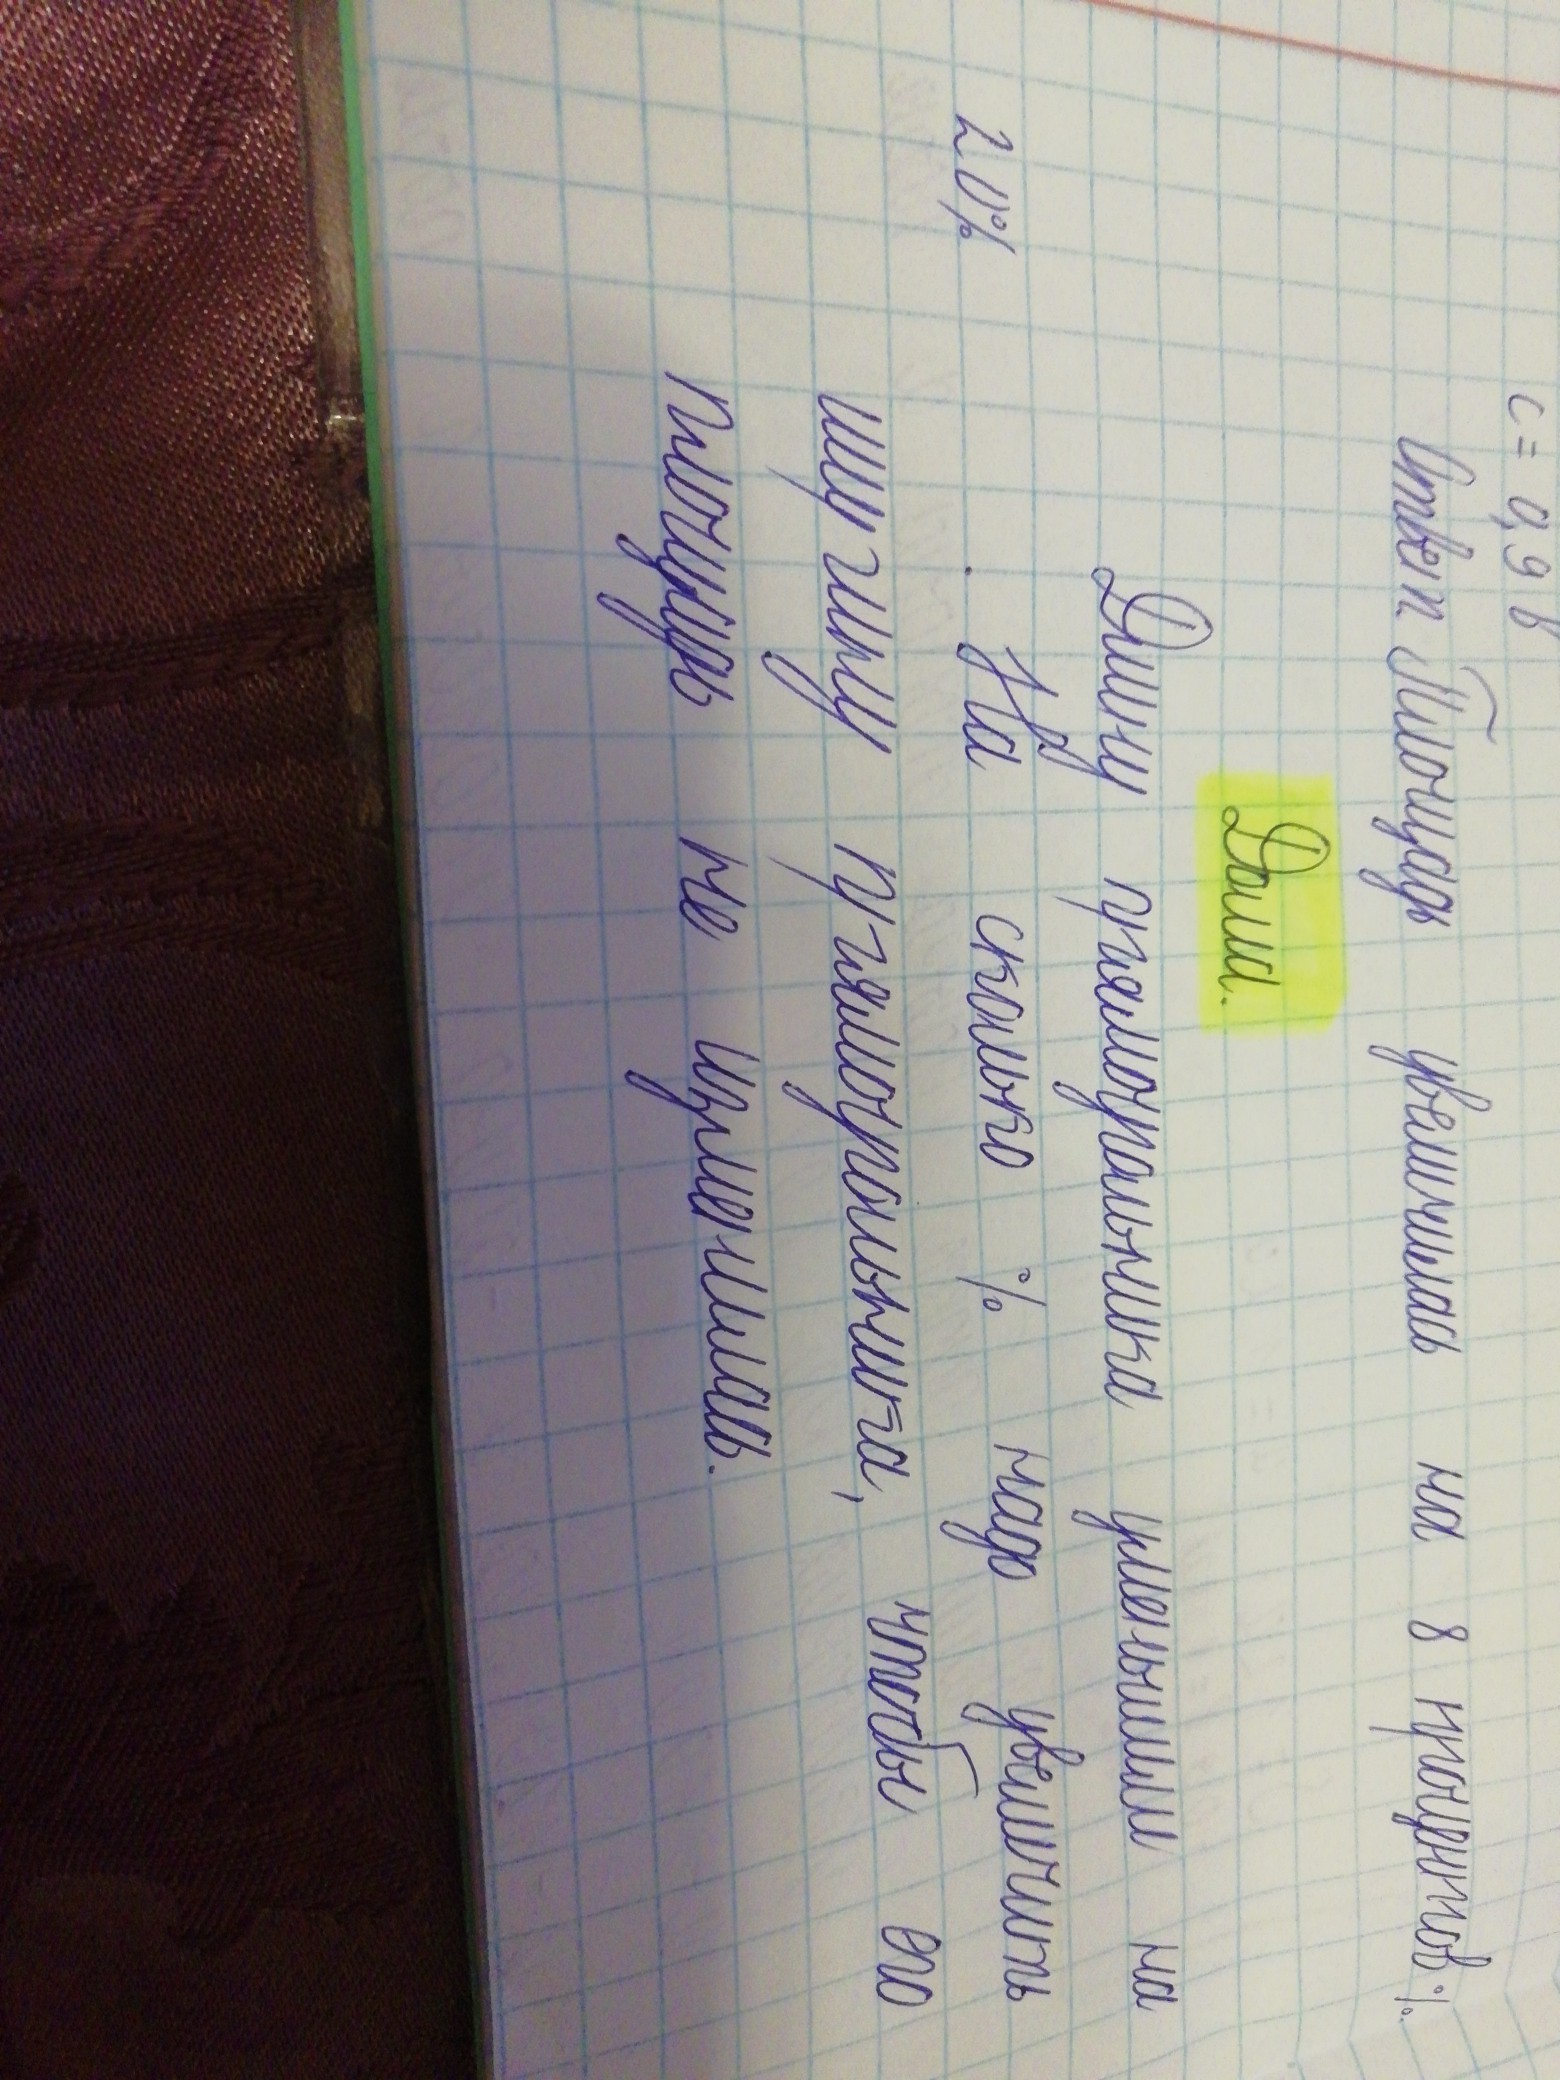 c = 0,9 b
Ответ Площадь увеличилась на 8 процентов %.
Дома.
Длину прямоугольника уменьшили на
20% . На сколько % надо увеличить
ширину прямоугольника, чтобы его
площадь не изменилась.